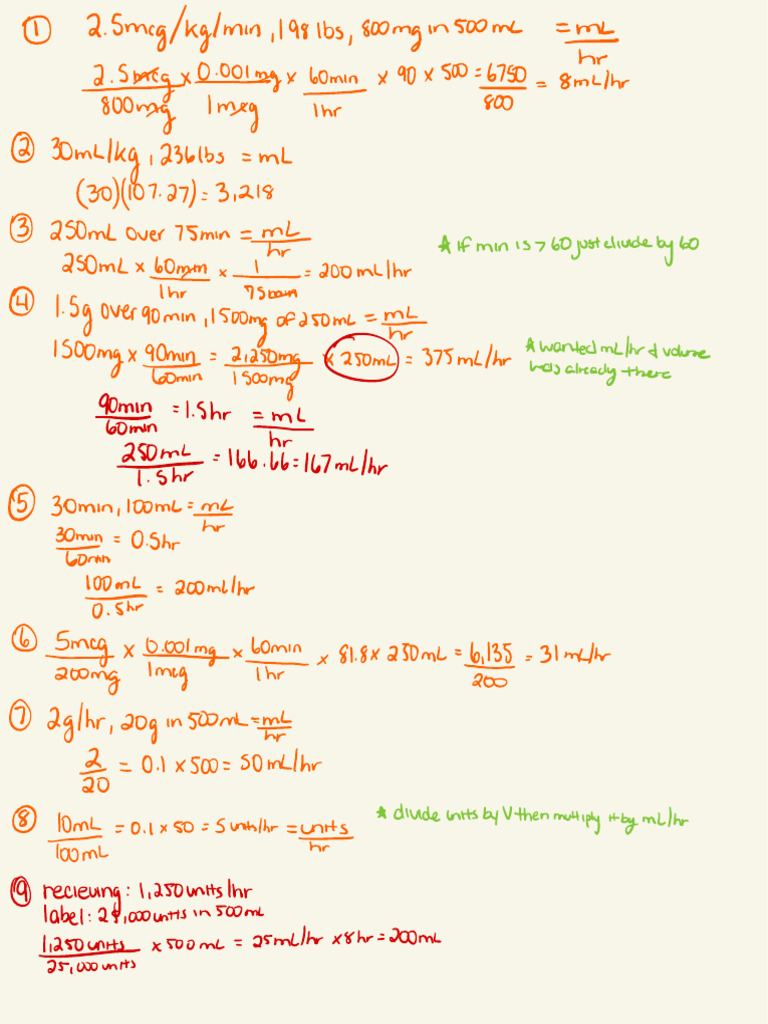 ① 2.5mcg/kg/min, 198 lbs, 800mg in 500mL = mL/hr
2.5mcg/800mg × 0.001mg/1mcg × 60min/1hr × 90 × 500 = 6750/800 = 8mL/hr
② 30mL/kg, 236lbs = mL
(30)(107.27) = 3,218
③ 250mL over 75min = mL/hr
★ if min is > 60 just divide by 60
250mL × 60min/1hr × 1/75min = 200mL/hr
④ 1.5g over 90min, 1500mg of 250mL = mL/hr
1500mg × 90min/60min = 2,250mg/1500mg × 250mL = 375mL/hr
★ wanted mL/hr & volume
was already there
90min/60min = 1.5hr = mL/hr
250mL/1.5hr = 166.66 = 167mL/hr
⑤ 30min, 100mL = mL/hr
30min/60min = 0.5hr
100mL/0.5hr = 200mL/hr
⑥ 5mcg/200mg × 0.001mg/1mcg × 60min/1hr × 81.8 × 250mL = 6,135/200 = 31mL/hr
⑦ 2g/hr, 20g in 500mL = mL/hr
2/20 = 0.1 × 500 = 50mL/hr
⑧ 10mL/100mL = 0.1 × 50 = 5units/hr = units/hr
★ divide units by V then multiply it by mL/hr
⑨ recieving: 1,250units/hr
label: 25,000units in 500mL
1,250units/25,000units × 500mL = 25mL/hr × 8hr = 200mL